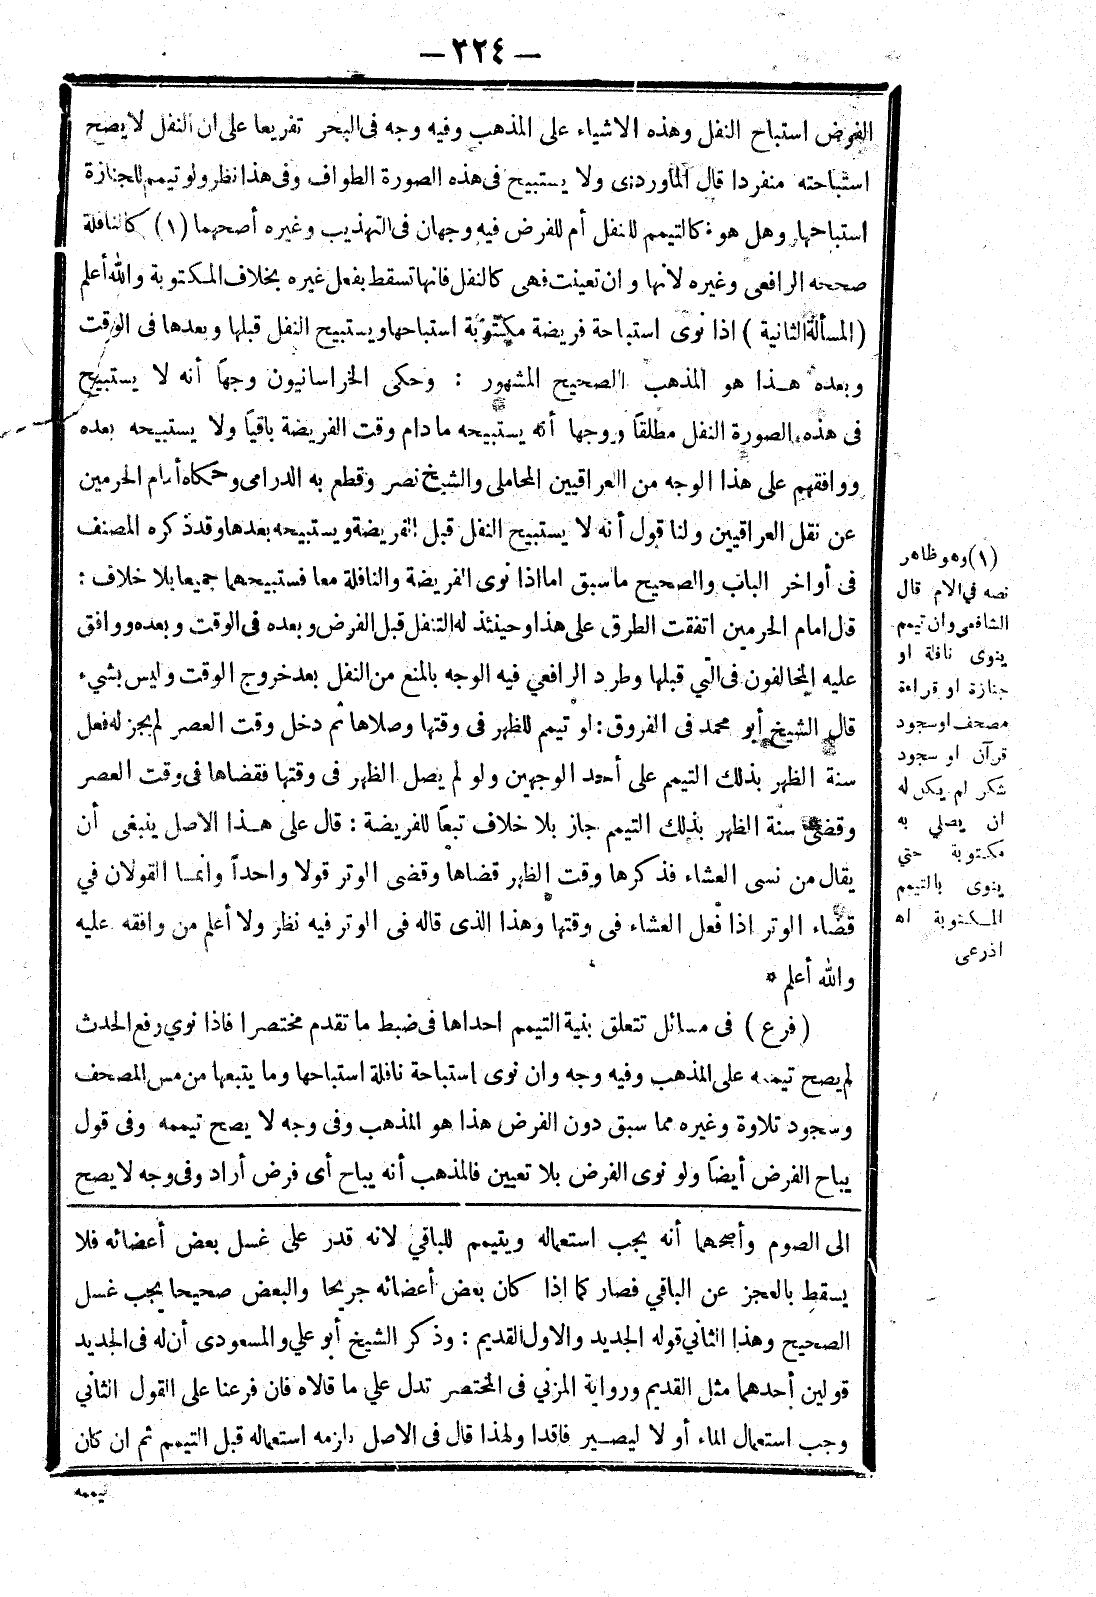 — ٣٢٤ —
الفرض استباح النفل وهذه الاشياء على المذهب وفيه وجه فى البحر تفريعا على ان النفل لا يصح
استباحته منفردا قال الماوردى ولا يستبيح فى هذه الصورة الطواف وفى هذا نظر ولو تيمم للجنازة
استباحها وهل هو كالتيمم للنفل أم للفرض فيه وجهان فى التهذيب وغيره أصحهما (١) كالنافلة
صححه الرافعى وغيره لانها وان تعينت فهى كالنفل فانها تسقط بفعل غيره بخلاف المكتوبة والله أعلم
(المسألة الثانية) اذا نوى استباحة فريضة مكتوبة استباحها ويستبيح النفل قبلها وبعدها فى الوقت
وبعده هــذا هو المذهب الصحيح المشهور : وحكى الخراسانيون وجهاً أنه لا يستبيح
فى هذه الصورة النفل مطلقاً ووجها أنه يستبيحه مادام وقت الفريضة باقياً ولا يستبيحه بعده
ووافقهم على هذا الوجه من العراقيين المحاملى والشيخ نصر وقطع به الدرامى وحكاه أمام الحرمين
عن نقل العراقيين ولنا قول أنه لا يستبيح النفل قبل الفريضة ويستبيحه بعدها وقد ذكره المصنف
فى أواخر الباب والصحيح ماسبق اما اذا نوى الفريضة والنافلة معا فستبيحهما جميعا بلا خلاف :
قال امام الحرمين اتفقت الطرق على هذا وحينئذ له التنفل قبل الفرض وبعده فى الوقت وبعده ووافق
عليه المخالفون فى التي قبلها وطرد الرافعي فيه الوجه بالمنع من النفل بعد خروج الوقت وليس بشيء
قال الشيخ أبو محمد فى الفروق : لو تيمم للظهر فى وقتها وصلاها ثم دخل وقت العصر لم يجز له فعل
سنة الظهر بذلك التيمم على أحد الوجهين ولو لم يصل الظهر فى وقتها فقضاها فى وقت العصر
وقضى سنة الظهر بذلك التيمم جاز بلا خلاف تبعاً للفريضة : قال على هــذا الاصل ينبغى أن
يقال من نسى العشاء فذكرها وقت الظهر قضاها وقضى الوتر قولا واحداً وانمــا القولان في
قضاء الوتر اذا فعل العشاء فى وقتها وهذا الذى قاله فى الوتر فيه نظر ولا أعلم من وافقه عليه
والله أعلم *
(فرع) فى مسائل تتعلق بنية التيمم احداها فى ضبط ما تقدم مختصرا فاذا نوي رفع الحدث
لم يصح تيممه على المذهب وفيه وجه وان نوى استباحة نافلة استباحها وما يتبعها من مس المصحف
وسجود تلاوة وغيره مما سبق دون الفرض هذا هو المذهب وفى وجه لا يصح تيممه وفى قول
يباح الفرض أيضاً ولو نوى الفرض بلا تعيين فالمذهب أنه يباح أى فرض أراد وفى وجه لا يصح
(١) وهو ظاهر
نصه في الام قال
الشافعى وان تيمم
ينوى نافلة او
جنازة او قراءة
مصحف او سجود
قرآن او سجود
شكر لم يكن له
ان يصلي به
مكتوبة حتي
ينوى بالتيمم
المكتوبة اه
اذرعى
الى الصوم وأصحهما أنه يجب استعماله ويتيمم للباقي لانه قدر على غسل بعض أعضائه فلا
يسقط بالعجز عن الباقي فصار كما اذا كان بعض أعضائه جريحا والبعض صحيحا يجب غسل
الصحيح وهذا الثاني قوله الجديد والاول القديم : وذكر الشيخ أبو علي والمسعودى أن له فى الجديد
قولين أحدهما مثل القديم ورواية المزني فى المختصر تدل علي ما قالاه فان فرعنا على القول الثاني
وجب استعمال الماء أو لا ليصــير فاقدا ولهذا قال فى الاصل يلزمه استعماله قبل التيمم ثم ان كان
تيممه